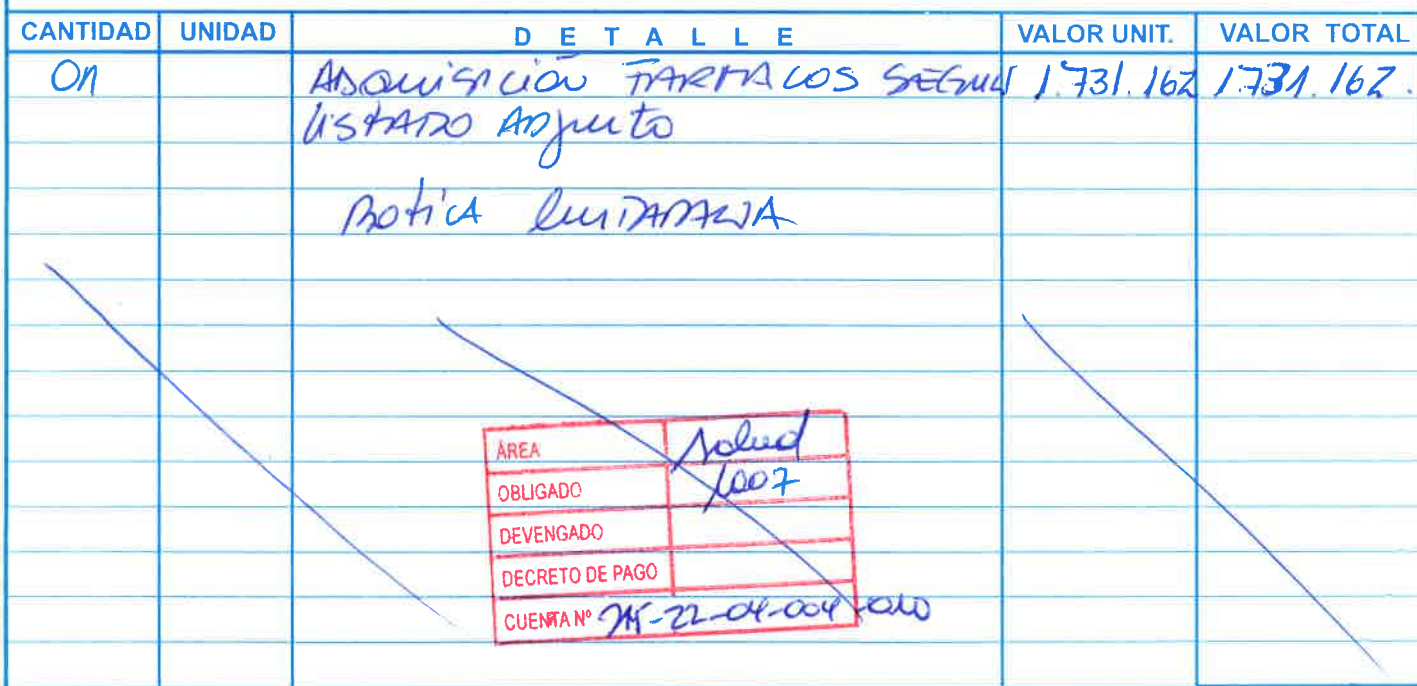 CANTIDAD UNIDAD DETALLE VALOR UNIT. VALOR TOTAL
01 ADQUISICIÓN FARMACOS SEGUN 1.731.162 1.731.162.
LISTADO ADJUNTO
BOTICA CIUDADANA
ÁREA Salud
OBLIGADO 1007
DEVENGADO
DECRETO DE PAGO
CUENTA Nº 215-22-04-004-010